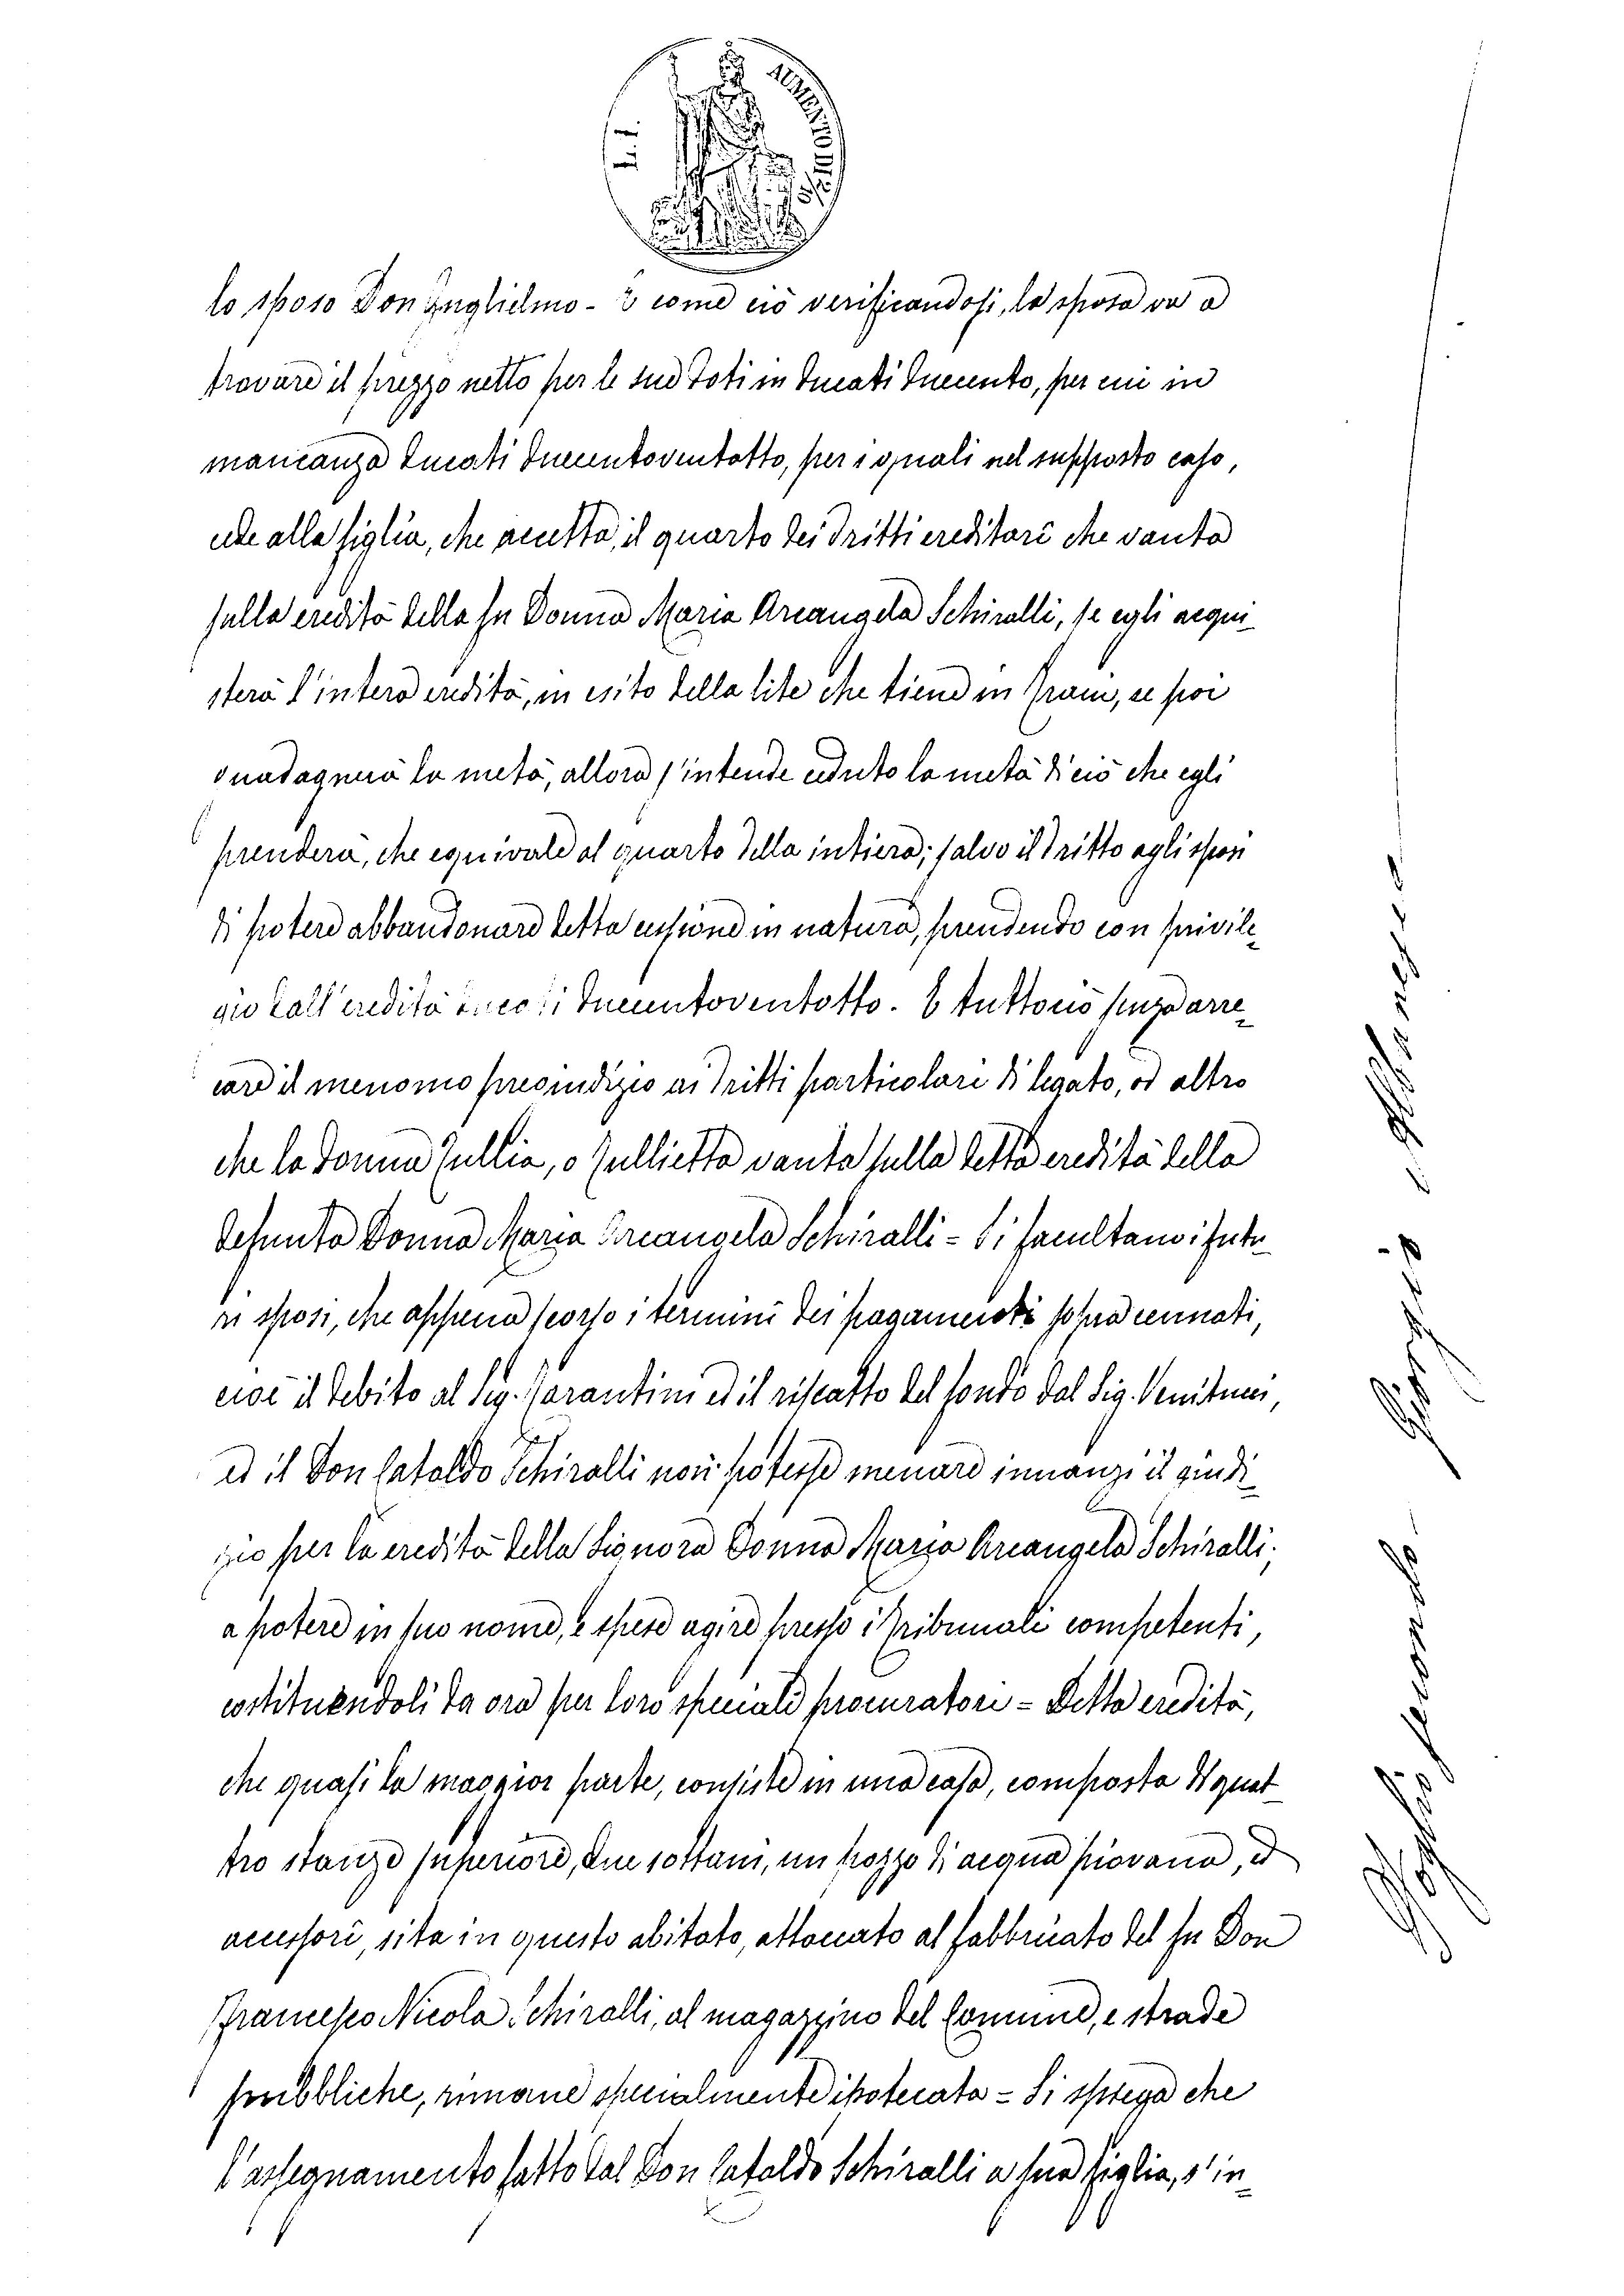 AUMENTO DI
lo sposo Don Guglielmo - E come ciò verificandosi, la sposa va a
trovare il prezzo netto per le sue doti in ducati duecento, per cui in
mancanza ducati duecentoventotto, per i quali nel supposto caso,
cede alla figlia, che accetta, il quarto dei dritti ereditarî che vanta
sulla eredità della fu Donna Maria Arcangela Schiralli, se egli acqui-
sterà l'intera eredità, in esito della lite che tiene in Trani, se poi
guadagnerà la metà, allora s'intende ceduto la metà di ciò che egli
prenderà, che equivale al quarto della intiera; salvo il dritto agli sposi
di potere abbandonare detta cessione in natura, prendendo con privile-
gio dall'eredità ducati duecentoventotto. E tuttociò senza arre-
care il menomo pregiudizio ai dritti particolari di legato, od altro
che la donna Tullia, o Tullietta vanta sulla detta eredità della
defunta Donna Maria Arcangela Schiralli = Si facultano i futu-
ri sposi, che appena scorso i termini dei pagamenti sopra cennati,
cioè il debito al Sig. Tarantini ed il riscatto del fondo dal Sig. Venitucci,
ed il Don Cataldo Schiralli non potesse menare innanzi il giudi-
zio per la eredità della Signora Donna Maria Arcangela Schiralli;
a potere in suo nome, e spese agire presso i Tribunali competenti,
costituendoli da ora per loro speciali procuratori = Detta eredità,
che quasi la maggior parte, consiste in una casa, composta di quat-
tro stanze superiore, due sottani, un pozzo di acqua piovana, ed
accessorî, sita in questo abitato, attaccato al fabbricato del fu Don
Francesco Nicola Schiralli, al magazzino del Comune, e strade
pubbliche, rimane specialmente ipotecata = Si spiega che
l'assegnamento fatto dal Don Cataldo Schiralli a sua figlia, s'in-